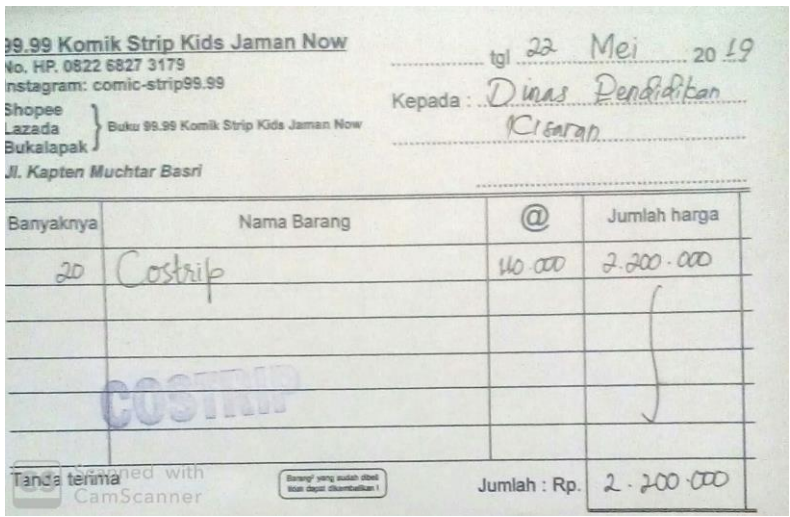 99.99 Komik Strip Kids Jaman Now
No. HP. 0822 6827 3179
Instagram: comic-strip99.99
Shopee
Lazada
Bukalapak
Buku 99.99 Komik Strip Kids Jaman Now
Jl. Kapten Muchtar Basri
tgl 22 Mei 2019
Kepada : Dinas Pendidikan
Kisaran
Banyaknya Nama Barang @ Jumlah harga
20 Costrip 110.000 2.200.000
COSTRIP
Tanda terima
Barang² yang sudah dibeli
tidak dapat dikembalikan !
Jumlah : Rp. 2.200.000
CS Scanned with
CamScanner